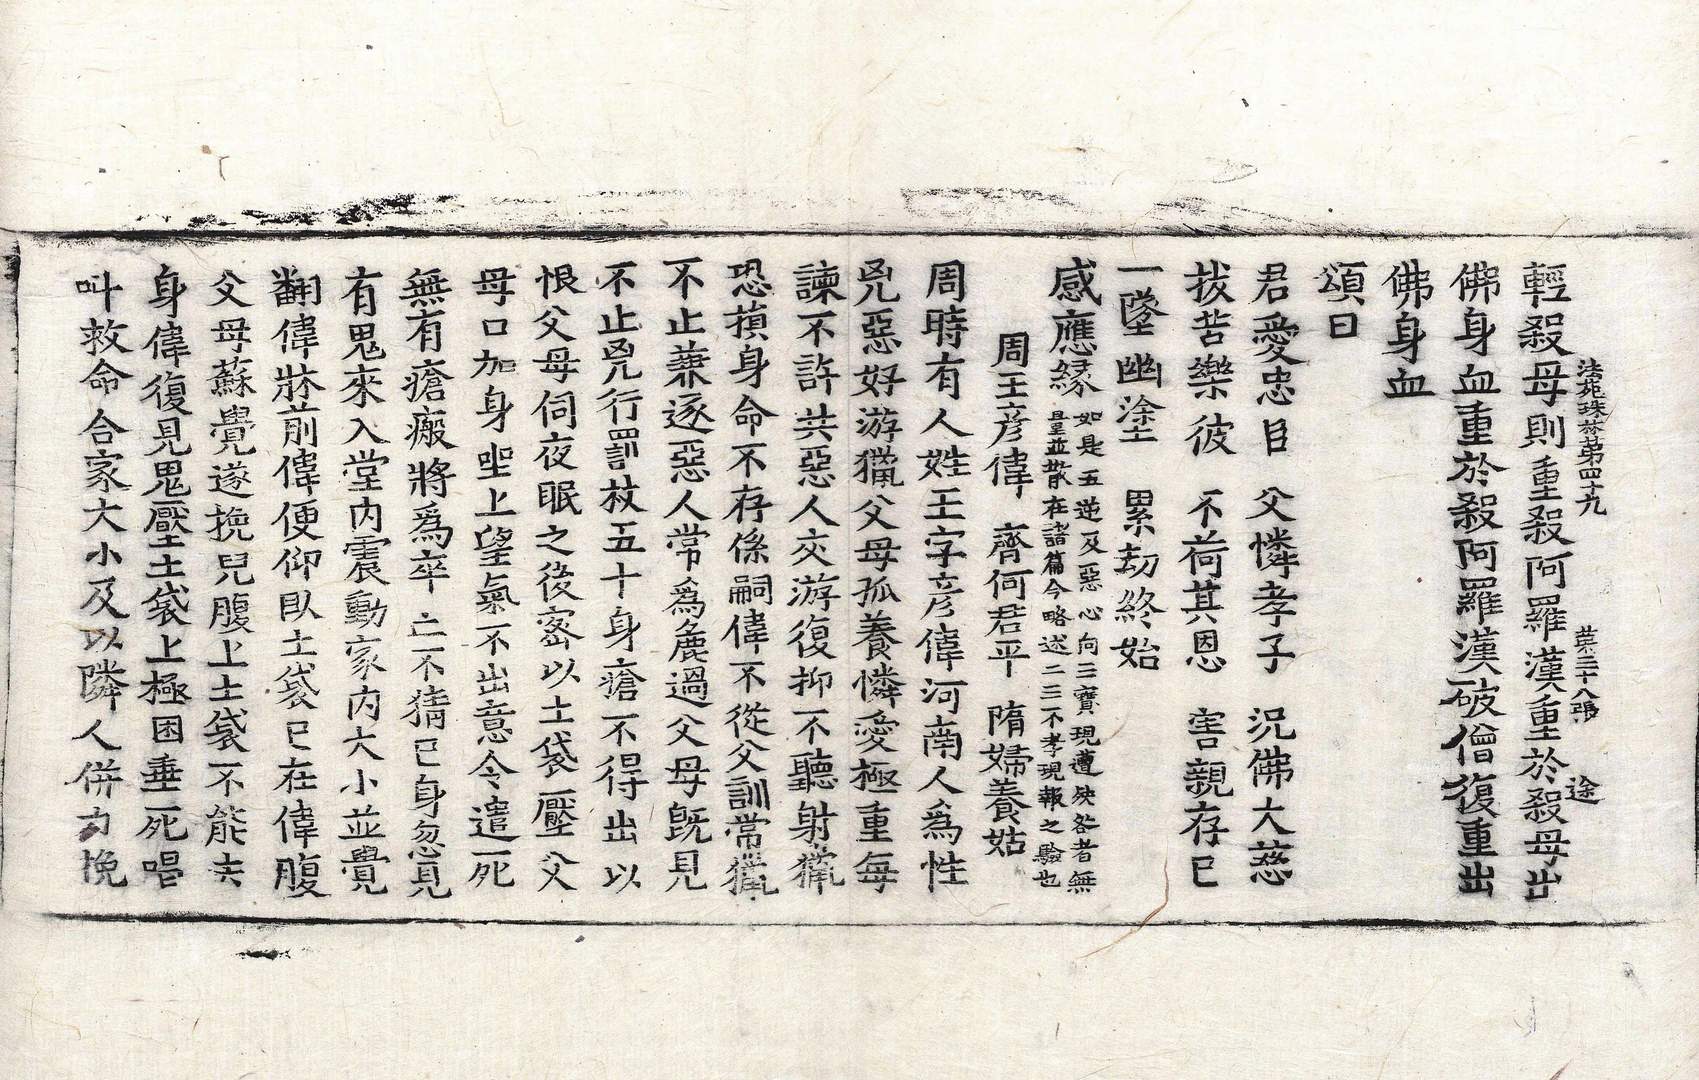 法苑珠林第四十九　第三十八張　途
輕殺母則重殺阿羅漢重於殺母出
佛身血重於殺阿羅漢破僧復重出
佛身血
頌曰
君愛忠臣　父憐孝子　況佛大慈
拔苦樂彼　不荷其恩　害親存已
一墜幽塗　累劫終始
感應緣如是五逆及惡心向三寶現遭殃咎者無量並散在諸篇今略述二三不孝現報之驗也
周王彦偉　齊何君平　隋婦養姑
周時有人姓王字彦偉河南人爲性
兇惡好游獵父母孤養憐愛極重每
諫不許共惡人交游復抑不聽射獵
恐損身命不存係嗣偉不從父訓常獵
不止兼逐惡人常爲麁過父母旣見
不止兇行罰杖五十身瘡不得出以
恨父母伺夜眠之後密以土袋壓父
母口加身坐上望氣不出意令遣死
無有瘡瘢將爲卒亡不猜已身忽見
有鬼來入堂内震動家内大小並覺
翻偉牀前偉便仰臥土袋已在偉腹
父母蘇覺遂挽兒腹上土袋不能去
身偉復見鬼壓土袋上極困垂死唱
叫救命合家大小及以隣人併力挽